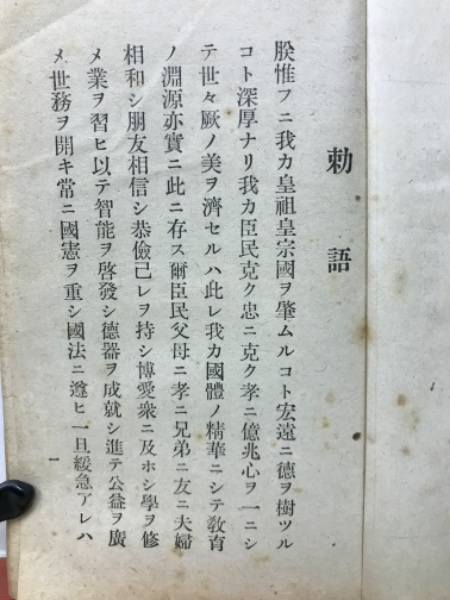 勅語
朕惟フニ我カ皇祖皇宗國ヲ肇ムルコト宏遠ニ德ヲ樹ツル
コト深厚ナリ我カ臣民克ク忠ニ克ク孝ニ億兆心ヲ一ニシ
テ世々厥ノ美ヲ濟セルハ此レ我カ國體ノ精華ニシテ教育
ノ淵源亦實ニ此ニ存ス爾臣民父母ニ孝ニ兄弟ニ友ニ夫婦
相和シ朋友相信シ恭儉己レヲ持シ博愛衆ニ及ホシ學ヲ修
メ業ヲ習ヒ以テ智能ヲ啓發シ德器ヲ成就シ進テ公益ヲ廣
メ世務ヲ開キ常ニ國憲ヲ重シ國法ニ遵ヒ一旦緩急アレハ
一